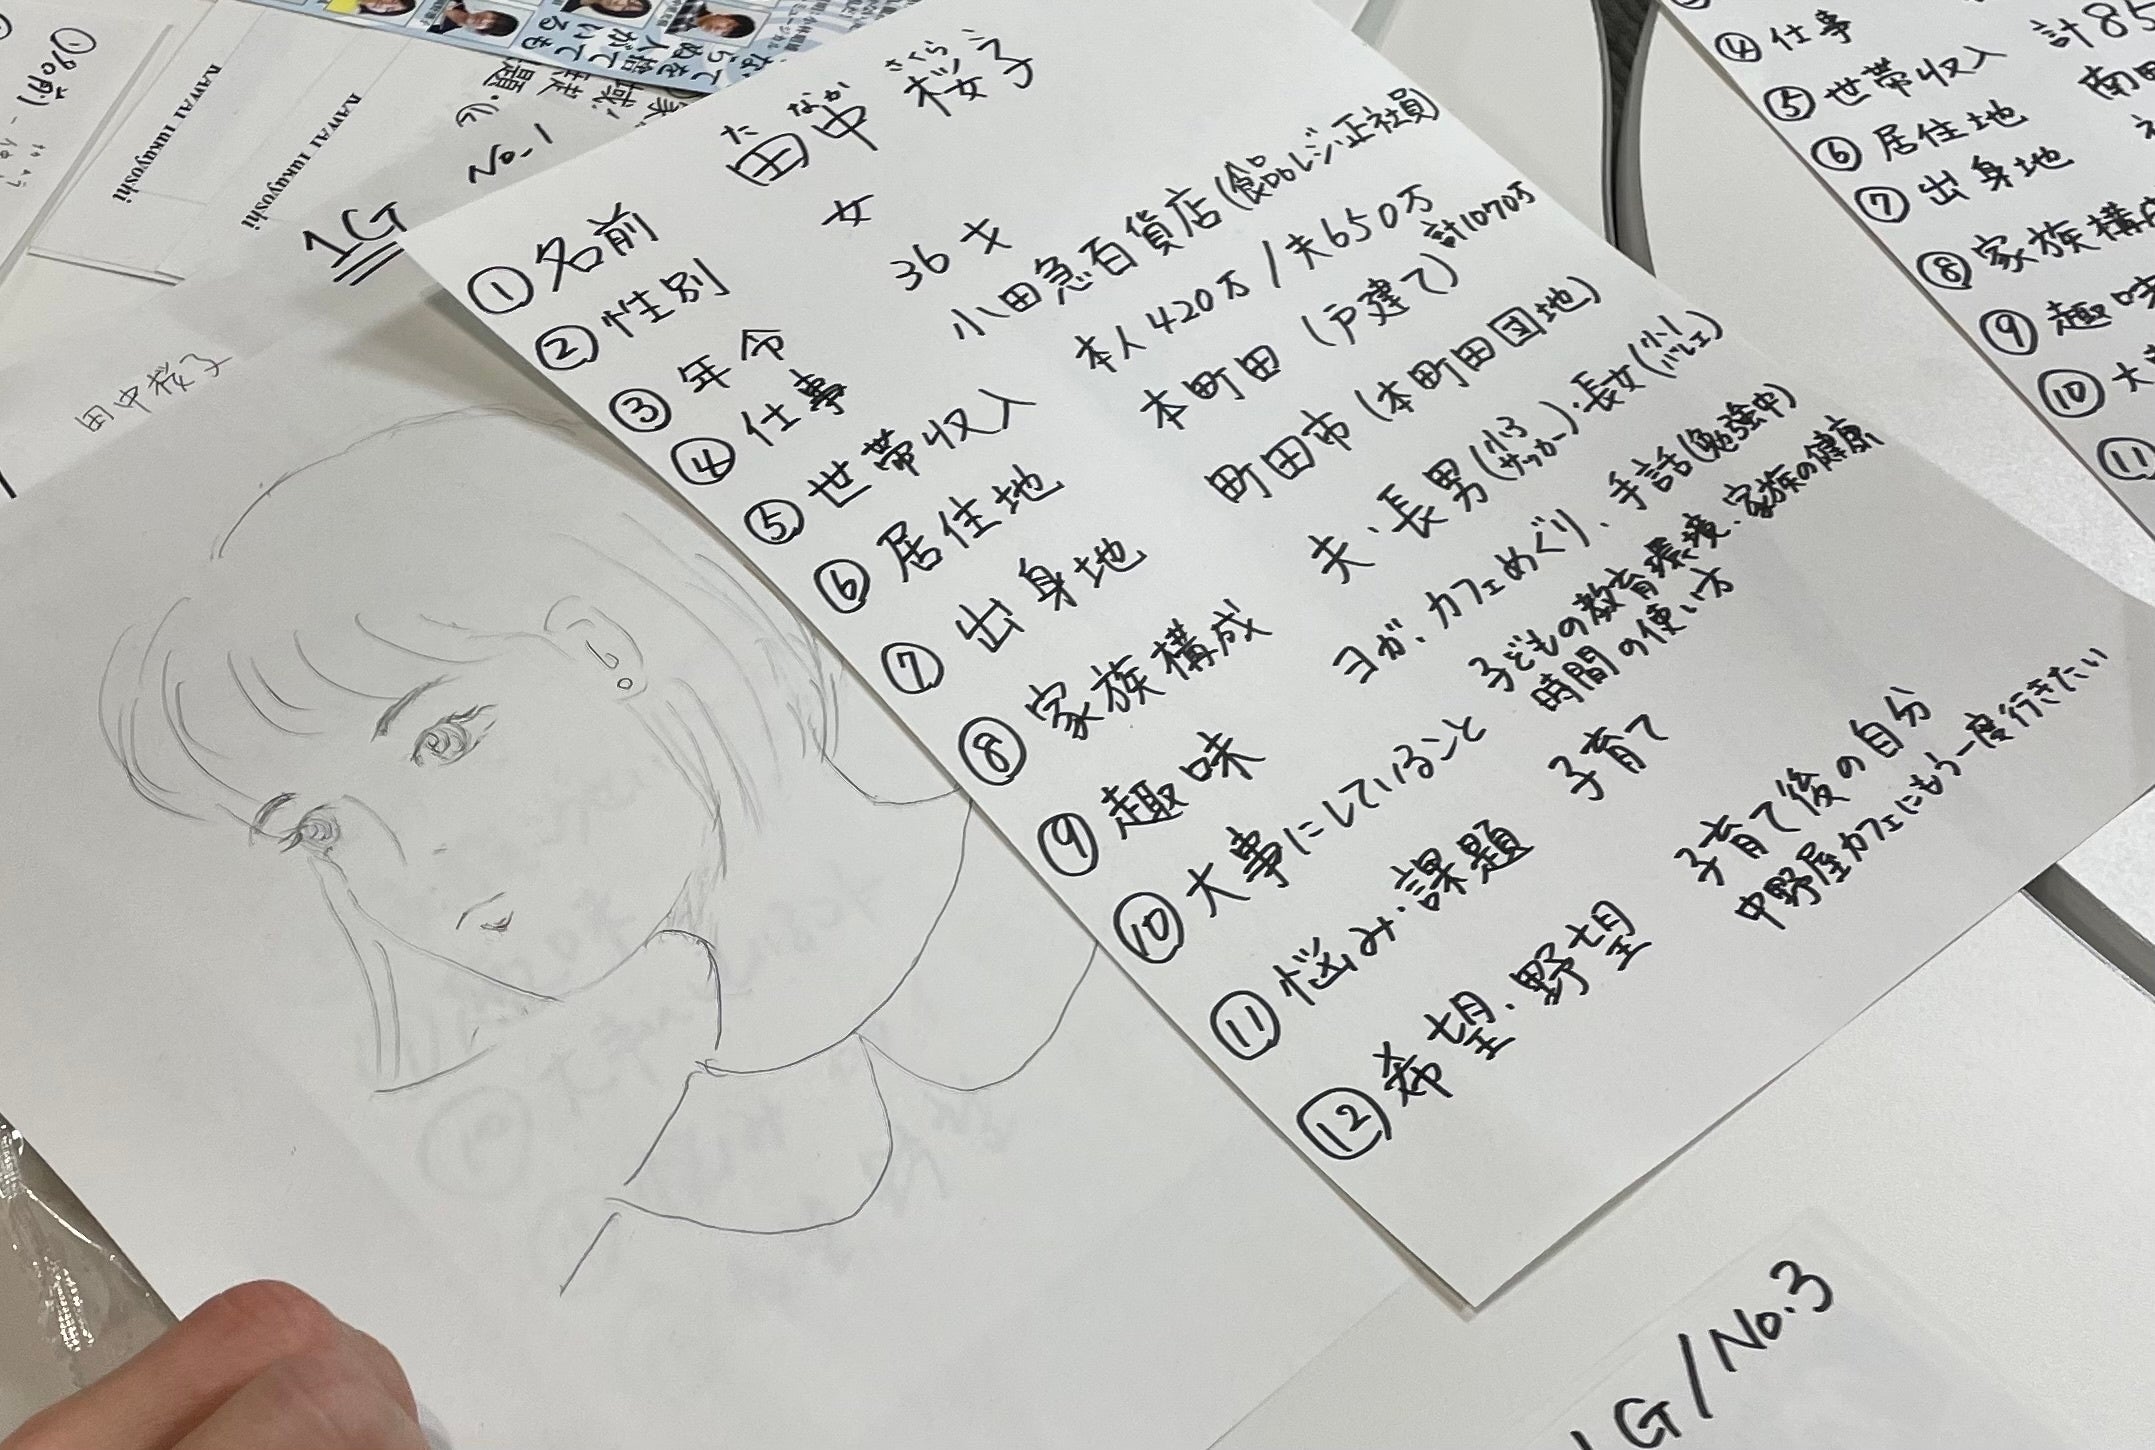 KAWAI Tukuyoshi
KAWAI Tukuyoshi
No.1
1G
田中桜子
た なか さくら
① 名前 田中 桜子
② 性別 女
③ 年令 36才
④ 仕事 小田急百貨店(食品レジ正社員)
⑤ 世帯収入 本人420万/夫650万 計1070万
⑥ 居住地 本町田(戸建て)
⑦ 出身地 町田市(本町田団地)
⑧ 家族構成 夫・長男(小3サッカー)・長女(小1バレエ)
⑨ 趣味 ヨガ、カフェめぐり、手話(勉強中)
⑩ 大事にしていること 子どもの教育環境、家族の健康
時間の使い方
⑪ 悩み・課題 子育て
⑫ 希望・野望 子育て後の自分
中野屋カフェにもう一度行きたい
④ 仕事
⑤ 世帯収入 計85
⑥ 居住地 南
⑦ 出身地
⑧ 家族構成
⑨ 趣味
⑩ 大
⑪
1G/No.3